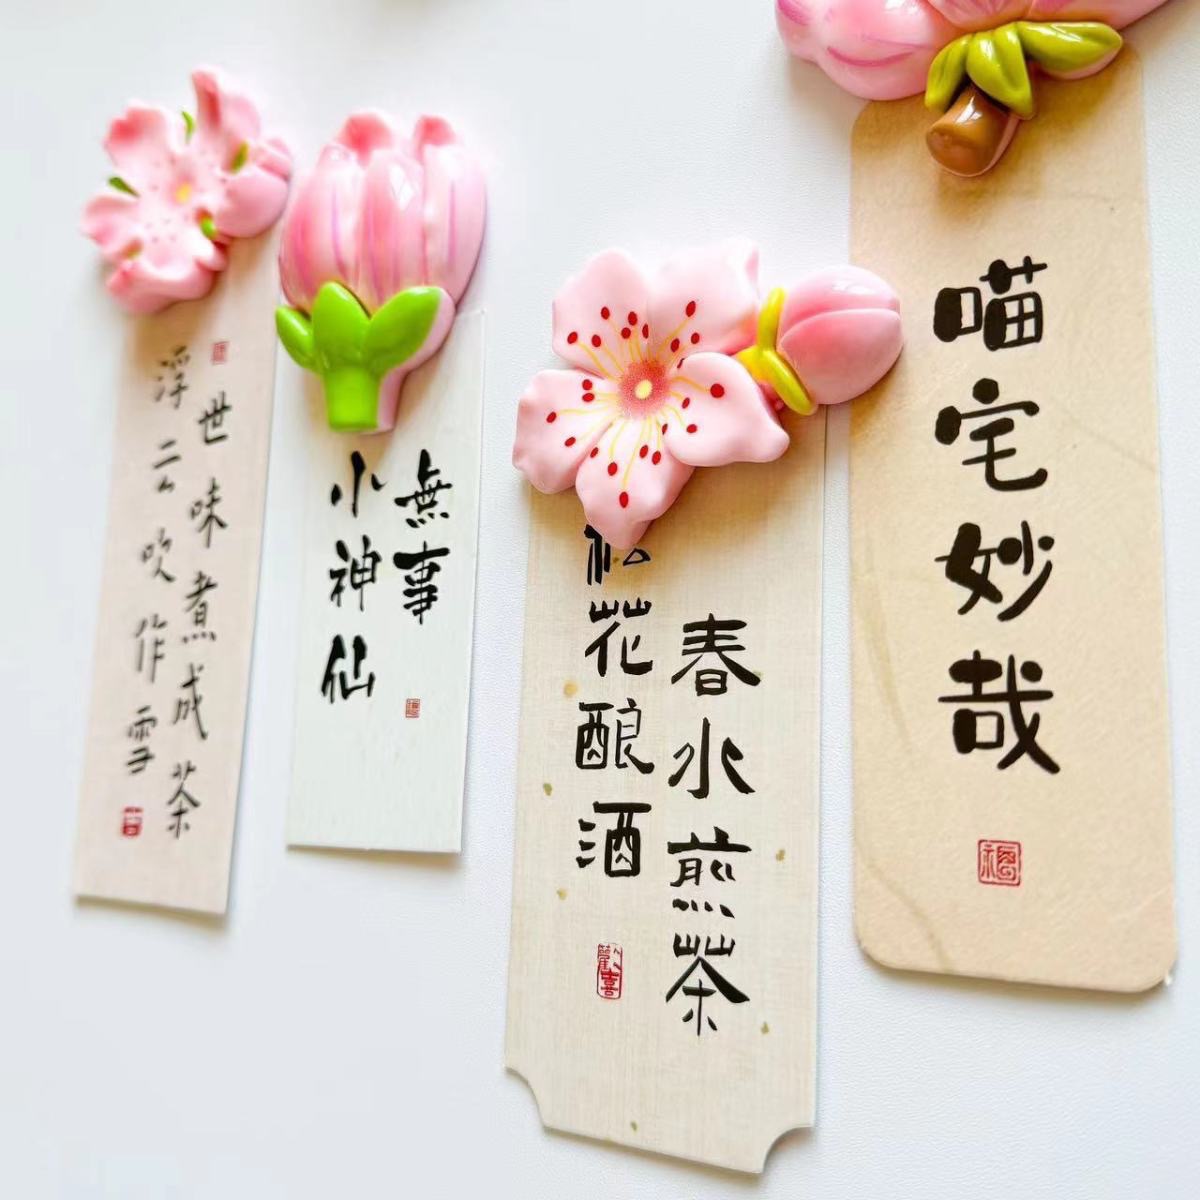 世味煮成茶
浮云吹作雪
無事
小神仙
春水煎茶
松花酿酒
歡喜
喵宅妙哉
福